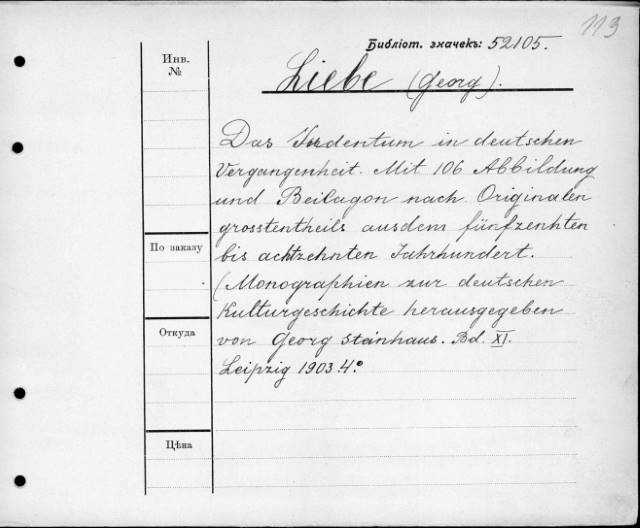 113
Библіот. значекъ: 52105.
Инв.
№
Liebe (Georg).
Das Judentum in deutschen
Vergangenheit. Mit 106 Abbildung
und Beilagon nach Originalen
grosstentheils ausdem fünfzenhten
bis achtzehnten Jahrhundert.
По заказу
(Monographien zur deutschen
Kulturgeschichte herausgegeben
Откуда
von Georg Stainhaus. Bd. XI.
Leipzig 1903. 4.°
Цѣна